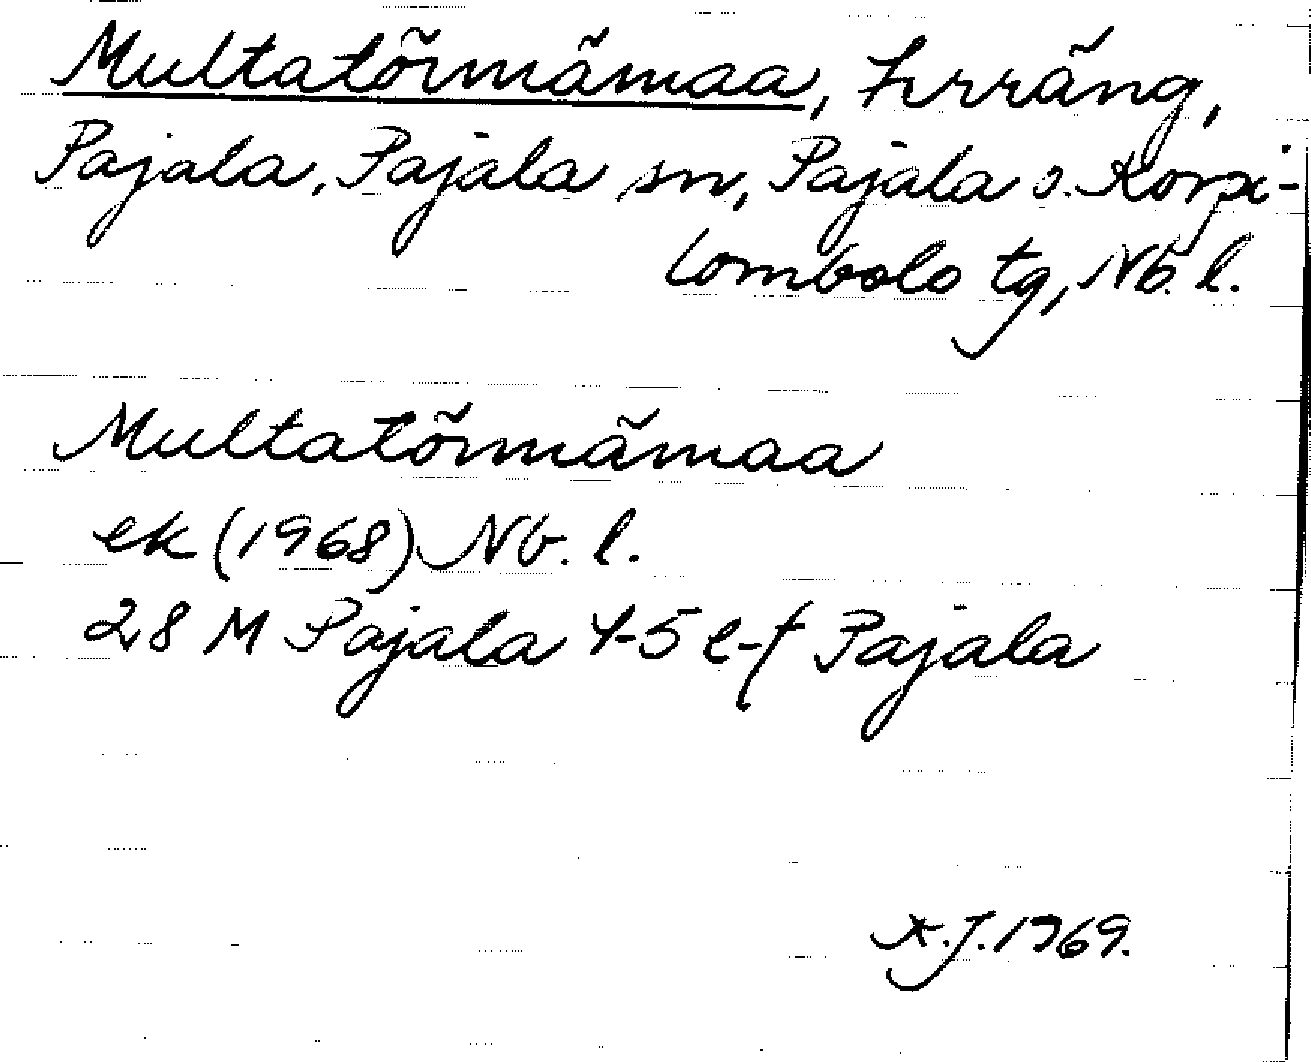 Multatörmämaa, terräng,
Pajala, Pajala sn, Pajala o. Korpi-
lombolo tg, Nb. l.
Multatörmämaa
ek (1968) Nb. l.
28 M Pajala 4-5 e-f Pajala
K.J. 1969.